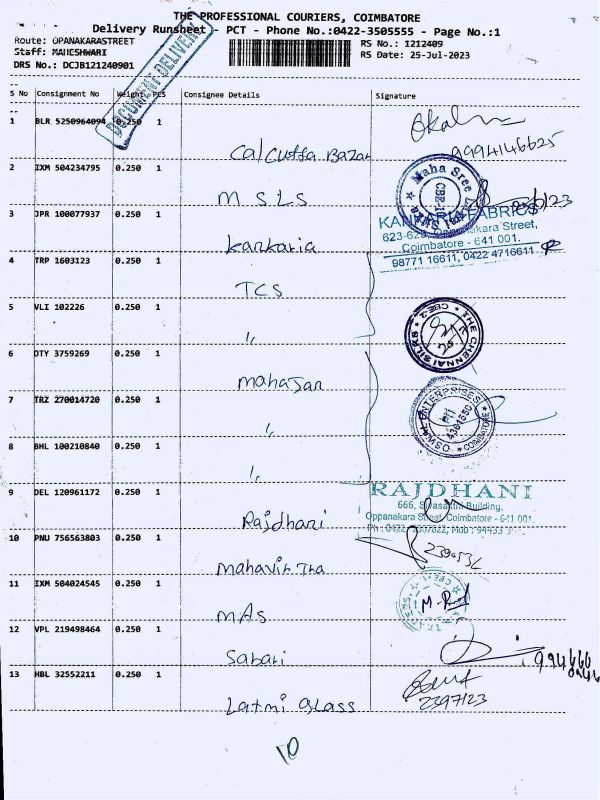 THE PROFESSIONAL COURIERS, COIMBATORE
Delivery Runsheet - PCT - Phone No.:0422-3505555 - Page No.:1
Route: OPANAKARASTREET
RS No.: 1212409
Staff: MAHESHWARI
RS Date: 25-Jul-2023
DRS No.: DCJB121240901
DOCUMENT DELIVERY
S No Consignment No Weight PCS Consignee Details Signature
1 BLR 5250964094 0.250 1 Calcutta Bazar
9994146625
2 IXM 504234795 0.250 1 M S L S
Maha Sree
3 JPR 100077937 0.250 1 Kankaria
FABRICS
Coimbatore - 641 001.
98771 16611, 0422 4716611
4 TRP 1603123 0.250 1 TCS
5 VLI 102226 0.250 1 ,,
THE CHENNAI SILKS
CBE-2
6 DTY 3759269 0.250 1 mahajan
7 TRZ 270014720 0.250 1 ,,
OSWAL ENTERPRISES
COIMBATORE
8 BHL 100210840 0.250 1 ,,
9 DEL 120961172 0.250 1 Rajdhani
RAJDHANI
666, Sivasakthi Building,
Oppanakara Street, Coimbatore - 641 001.
10 PNU 756563803 0.250 1
11 IXM 504024545 0.250 1 MAS
12 VPL 219498464 0.250 1 Sabari
13 HBL 32552211 0.250 1 Laxmi glass
10